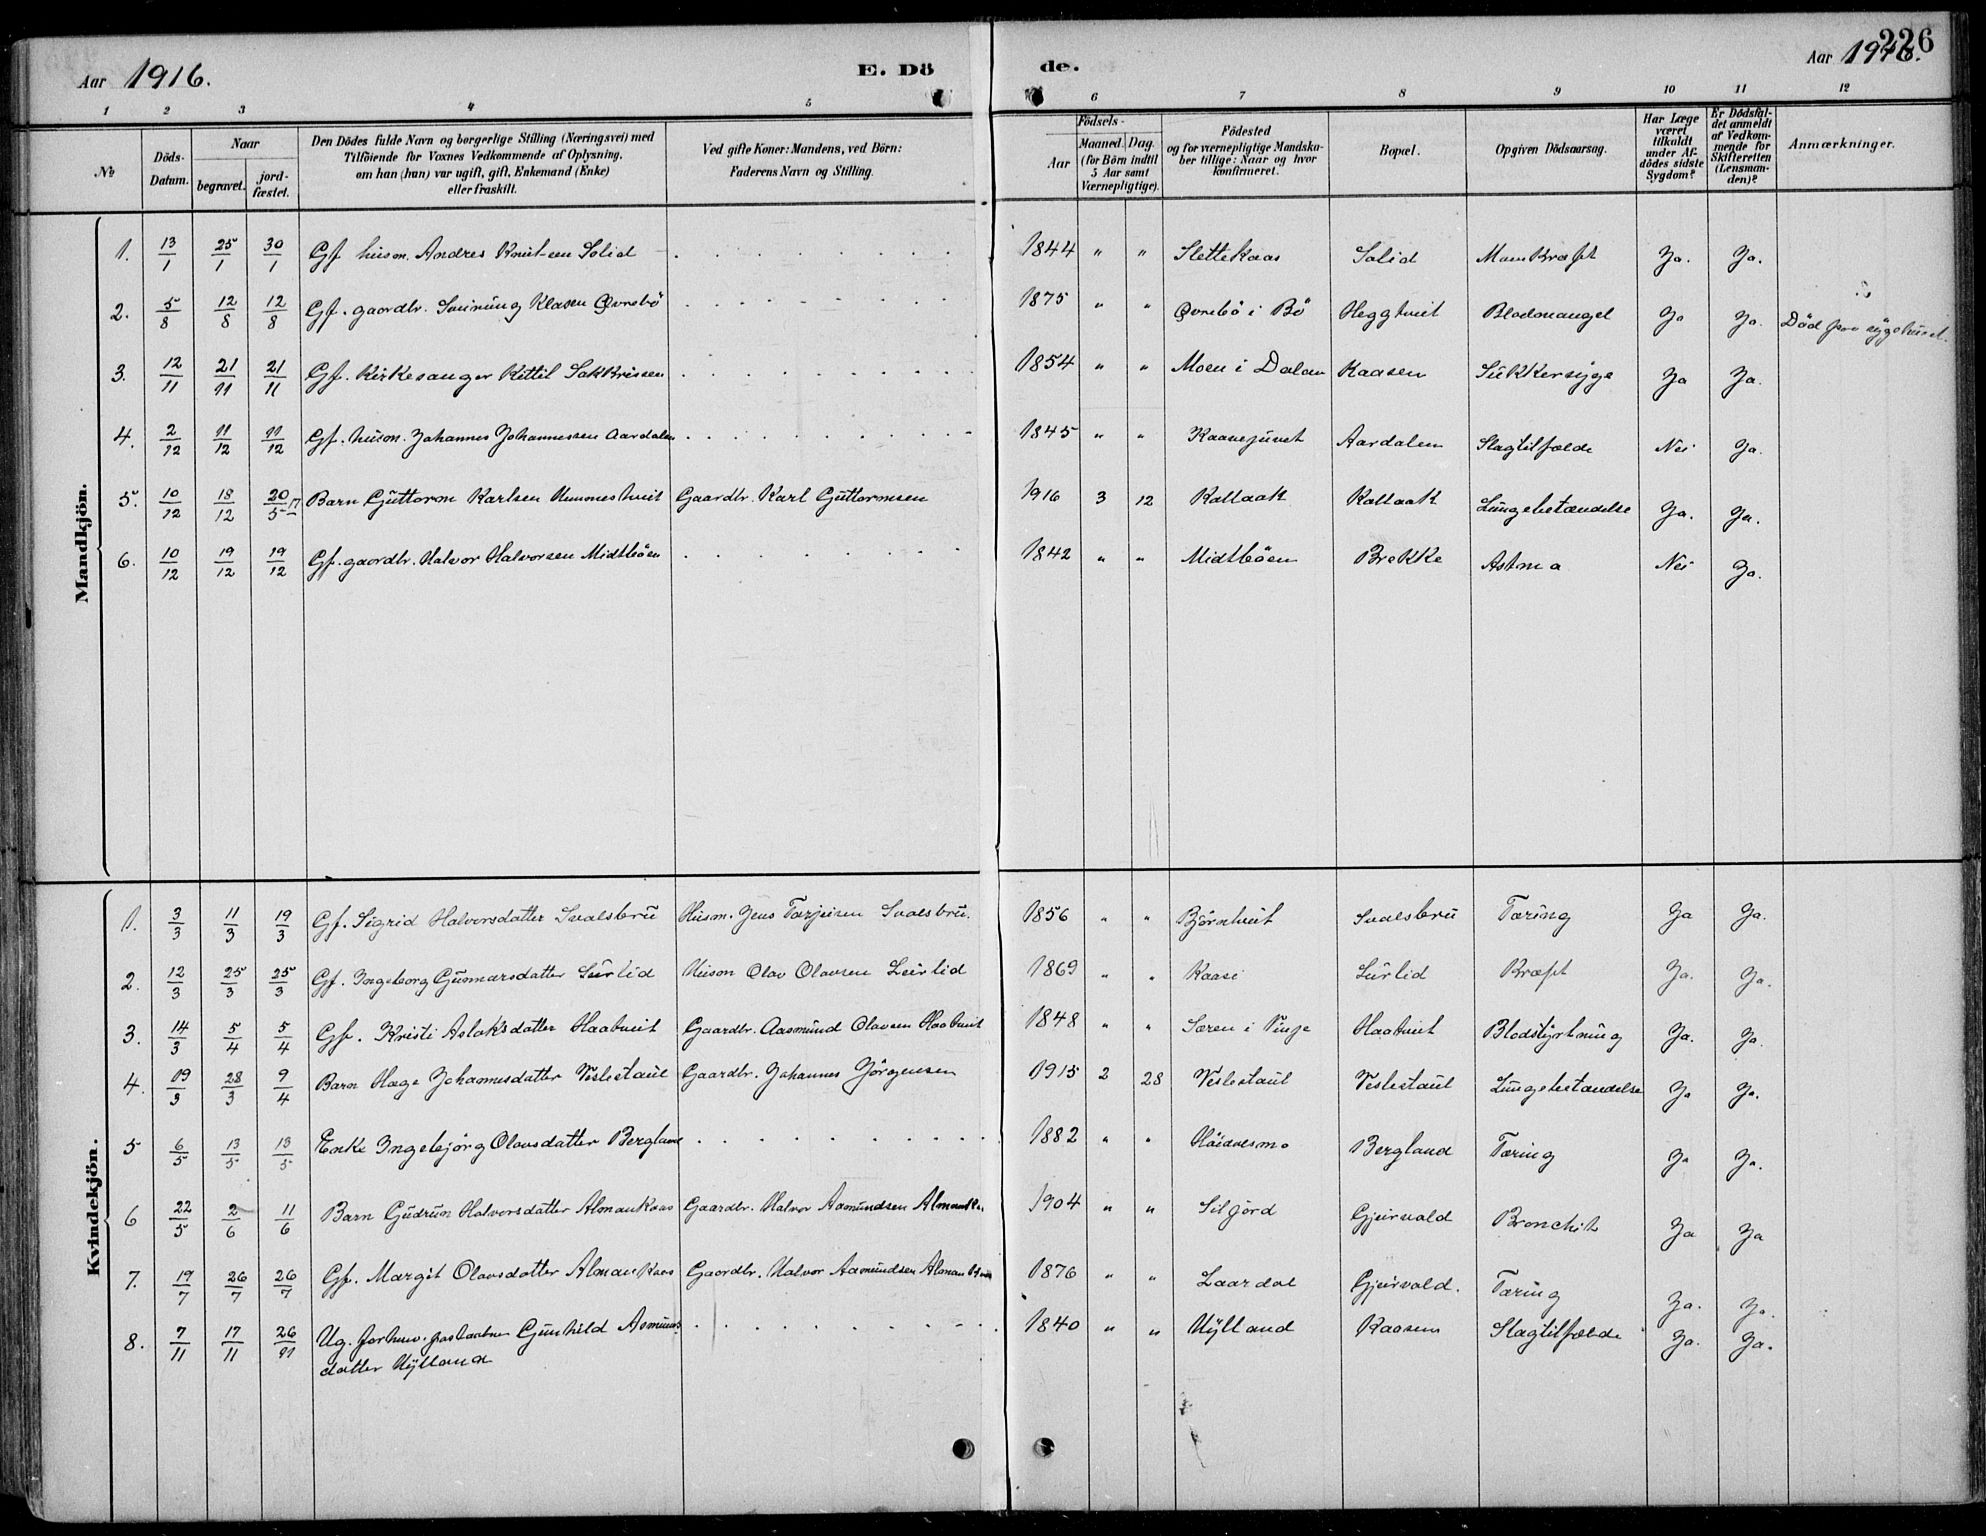 Aar 1916. E. Dö de. Aar 1916. 226
1 2 3 4 5 6 7 8 9 10 11 12
№ Döds-Datum. Naar begravet. jordfæstet. Den Dödes fulde Navn og borgerlige Stilling (Næringsvei) med Tilföiende for Voxnes Vedkommende af Oplysning, om han (hun) var ugift, gift, Enkemand (Enke) eller fraskilt. Ved gifte Koner: Mandens, ved Börn: Faderens Navn og Stilling. Födsels- Aar Maaned. Dag. (for Börn indtil 5 Aar samt Værnepligtige). Födested og for værnepligtige Mandskaber tillige: Naar og hvor konfirmeret. Bopæl. Opgiven Dödsaarsag. Har Læge været tilkaldt under Afdödes sidste Sygdom? Er Dödsfaldet anmeldt af Vedkommende for Skifteretten (Lensmanden)? Anmærkninger.
Mandkjön.
1. 13/1 25/1 30/1 Gf. husm. Andres Knutsen Solid 1844 " " Slettekaas Solid Mavekræft Ja. Ja.
2. 5/8 12/8 12/8 Gf. gaardbr. Sveinung Klasen Øvrebö 1875 " " Øvrebö i Bö Heggtveit Blodmangel Ja Ja. Död paa sygehuset.
3. 12/11 21/11 21/11 Gf. Kirkesanger Kittil Sakkrissen 1854 " " Moen i Dalen Kaasen Sukkersyge Ja Ja.
4. 2/12 11/12 11/12 Gf. husm. Johannes Johannessen Aardalen 1845 " " Kaavejuvet Aardalen Slagtilfælde Nei Ja.
5. 10/12 18/12 20/5 17 Barn Guttorm Karlsen Nummestveit Gaardbr. Karl Guttormsen 1916 3 12 Kaltaak Kaltaak Lungebetændelse Ja. Ja.
6. 10/12 19/12 19/12 Gf. gaardbr. Halvor Halvorsen Midtböen 1842 " " Midtböen Brekke Astma Nei Ja.
Kvindekjön.
1. 3/3 11/3 19/3 Gf. Sigrid Halvorsdatter Svalsbru Husm. Jens Tarjeisen Svalsbru. 1856 " " Björntveit Svalsbru Tæring Ja Ja.
2. 12/3 25/3 25/3 Gf. Ingeborg Gunnarsdatter Leirlid Husm Olav Olavsen Leirlid 1869 " " Kaasi Leirlid Kræft Ja. Ja.
3. 14/3 5/4 5/4 Gf. Kristi Aslaksdatter Haatveit Gaardbr. Aasmund Olavsen Haatveit 1848 " " Særen i Vinje Haatveit Blodstyrtning Ja. Ja.
4. 19/3 28/3 9/4 Barn Hæge Johannesdatter Veslestaul Gaardbr. Johannes Jörgensen 1915 2 28 Veslestaul Veslestaul Lungebetændelse Ja Ja.
5 6/5 13/5 13/5 Enke Ingebjörg Olavsdatter Bergland 1882 " " Höidalsmo Bergland Tæring Ja Ja.
6 22/5 2/6 11/6 Barn Gudrun Halvorsdatter Almankaas Gaardbr. Halvor Aamundsen Almank. 1904 " " Siljord Gjeirvald Bronchit Ja Ja
7. 19/7 26/7 26/7 Gf. Margit Olavsdatter Almankaas Gaardbr. Halvor Aamundsen Almankaas 1876 " " Laardal Gjeirvald. Tæring Ja. Ja.
8. 7/11 17/11 26/11 Ug. Gunhild Asmunds 1840 " " Nylland Kaasen Slagtilfælde Ja. Ja.
datter Nylland